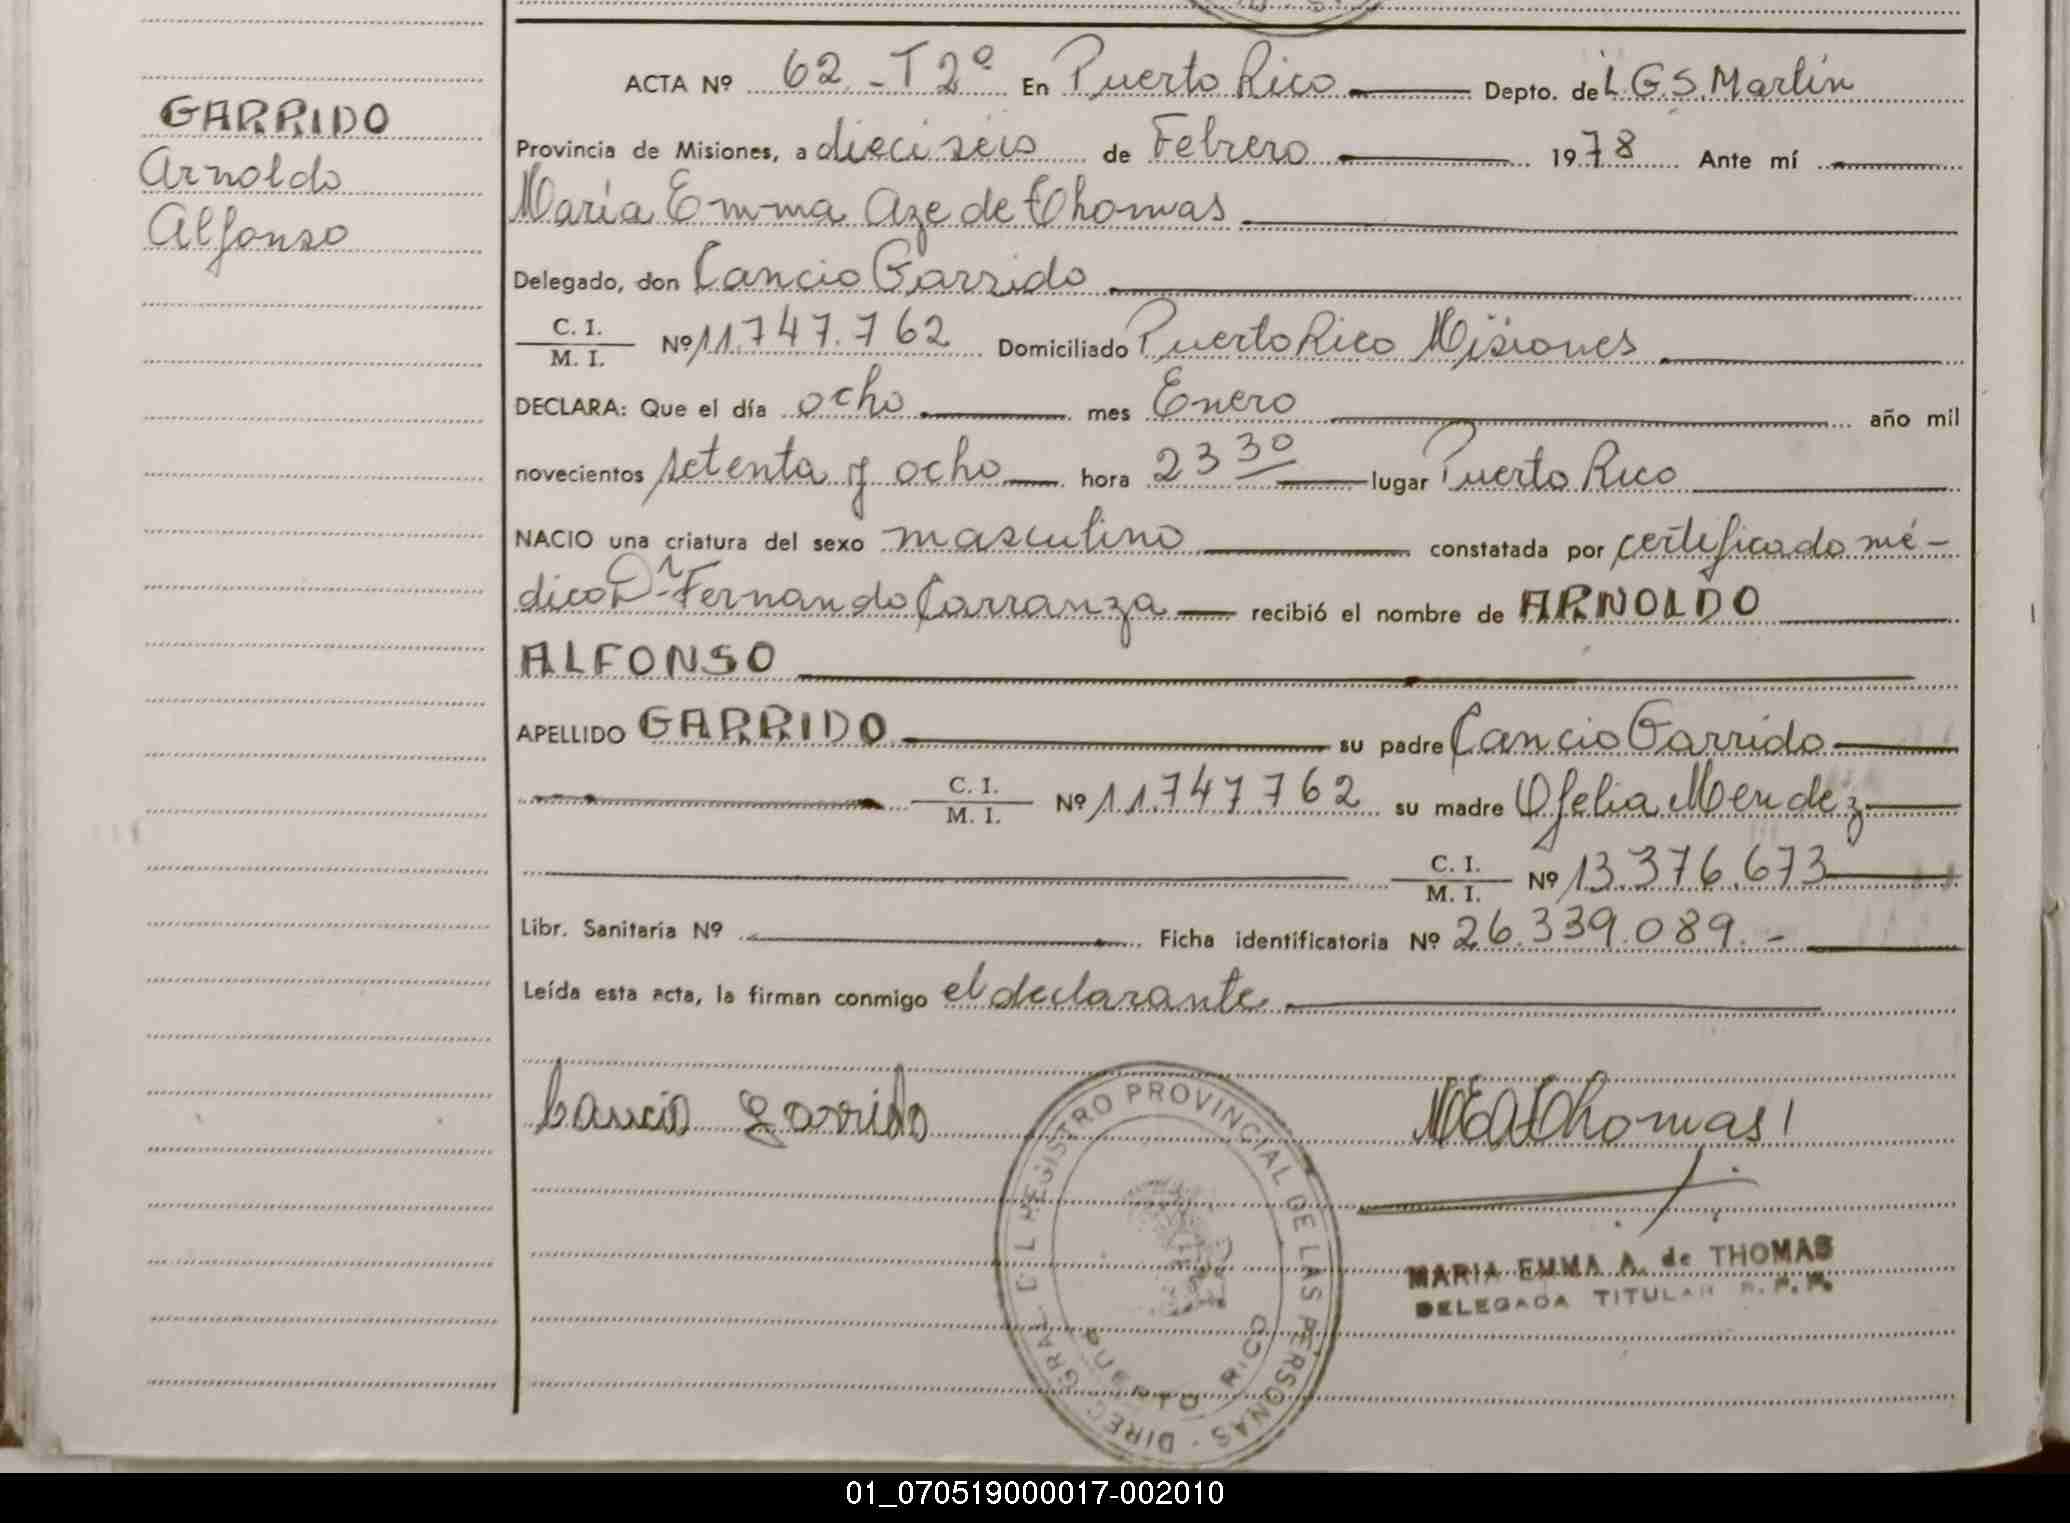 GARRIDO
Arnoldo
Alfonso
ACTA Nº 62 - T 2º En Puerto Rico Depto. de L.G.S. Martín
Provincia de Misiones, a dieciséis de Febrero 1978 Ante mí
María Emma Aze de Thomas
Delegado, don Cancio Garrido
C. I.
M. I. Nº 11.747.762 Domiciliado Puerto Rico Misiones
DECLARA: Que el día ocho mes Enero año mil
novecientos setenta y ocho hora 23 30 lugar Puerto Rico
NACIO una criatura del sexo masculino constatada por certificado mé-
dico Dr Fernando Carranza recibió el nombre de ARNOLDO
ALFONSO
APELLIDO GARRIDO su padre Cancio Garrido
C. I.
M. I. Nº 11.747.762 su madre Ofelia Mendéz
C. I.
M. I. Nº 13.376.673
Libr. Sanitaria Nº Ficha identificatoria Nº 26.339.089.-
Leída esta acta, la firman conmigo el declarante
Cancio Garrido
MEAThomas
DIREC. GRAL. DEL REGISTRO PROVINCIAL DE LAS PERSONAS
PUERTO RICO
MARIA EMMA A. de THOMAS
DELEGADA TITULAR R. P. P.
01_070519000017-002010